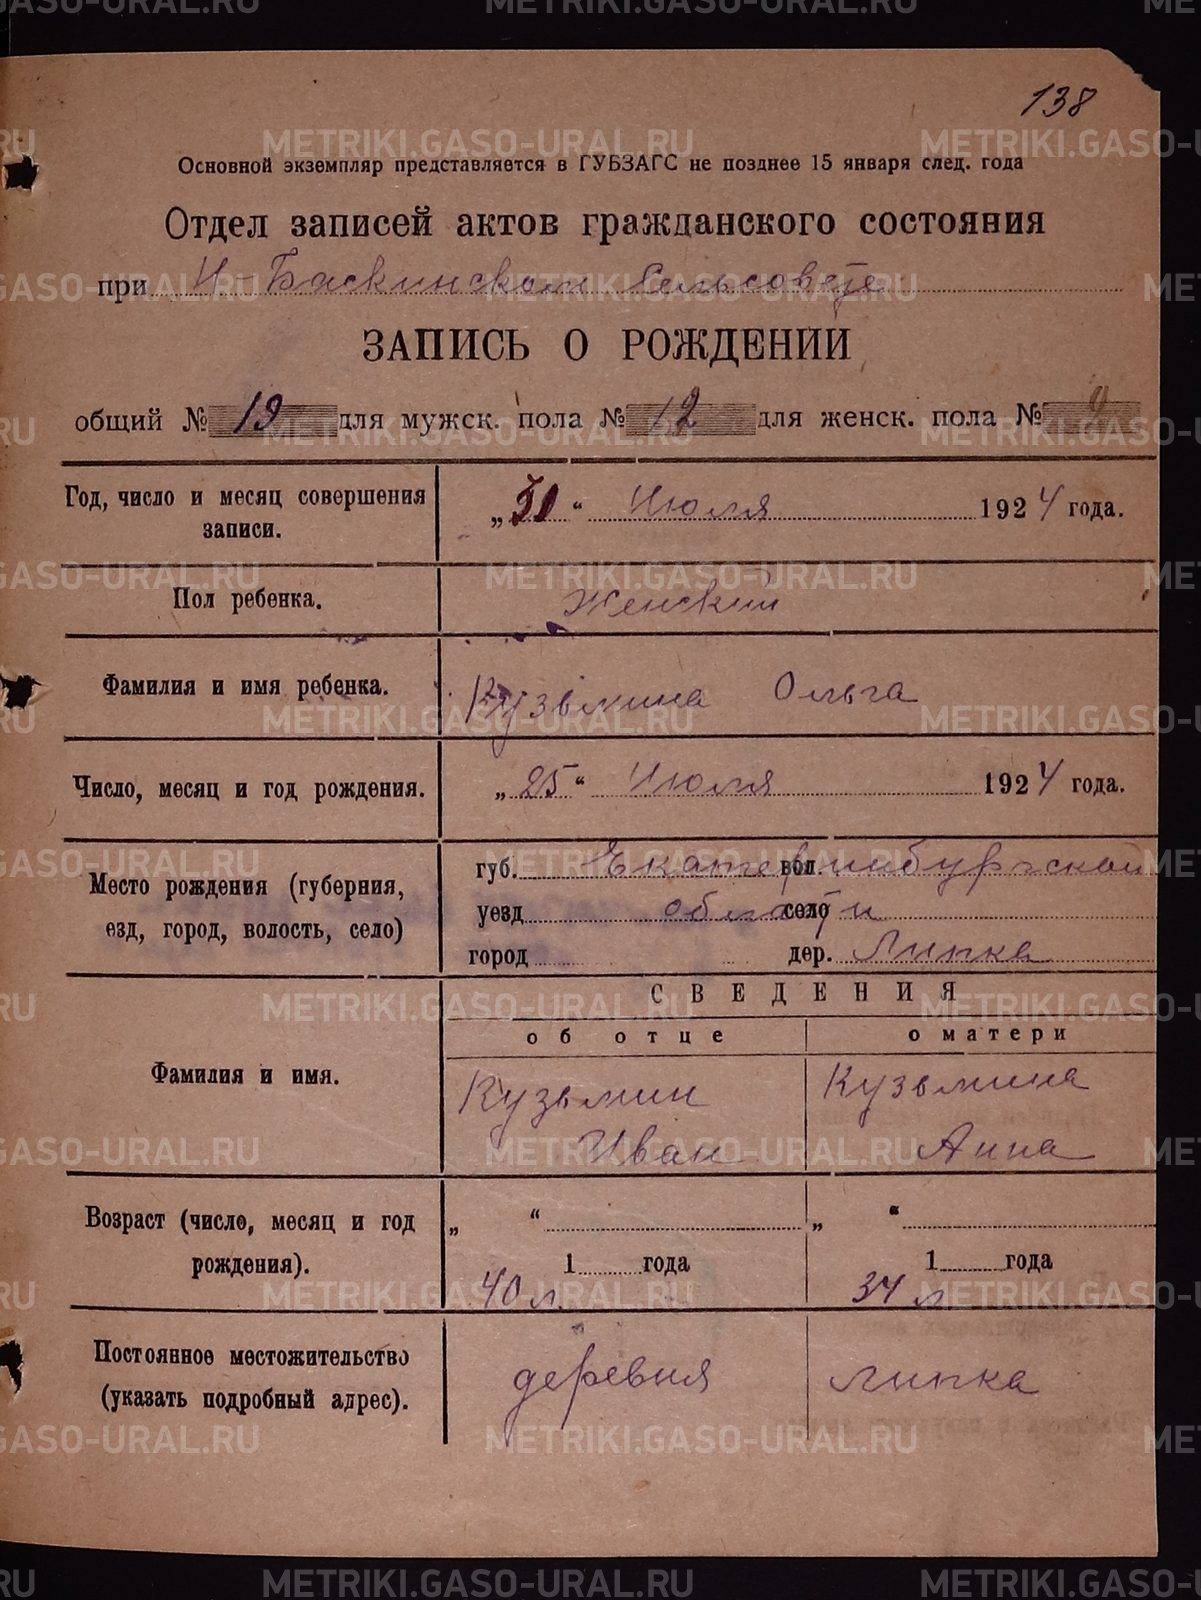 138
Основной экземпляр представляется в ГУБЗАГС не позднее 15 января след. года
Отдел записей актов гражданского состояния
при Н-Баскинском Сельсовете
ЗАПИСЬ О РОЖДЕНИИ
общий № 19 для мужск. пола № 12 для женск. пола №
Год, число и месяц совершения записи.
„ “ Июля 1924 года.
Пол ребенка.
Женский
Фамилия и имя ребенка.
Кузьмина Ольга
Число, месяц и год рождения.
„25“ Июля 1924 года.
Место рождения (губерния,
езд, город, волость, село)
губ. Екатеринбургской вол.
уезд области село
город дер. Липка
СВЕДЕНИЯ
об отце
о матери
Фамилия и имя.
Кузьмин
Иван
Кузьмина
Анна
Возраст (число, месяц и год
рождения).
„ “
1 года
40 л.
„ “
1 года
34 л
Постоянное местожительство
(указать подробный адрес).
деревня Липка
METRIKI.GASO-URAL.RU